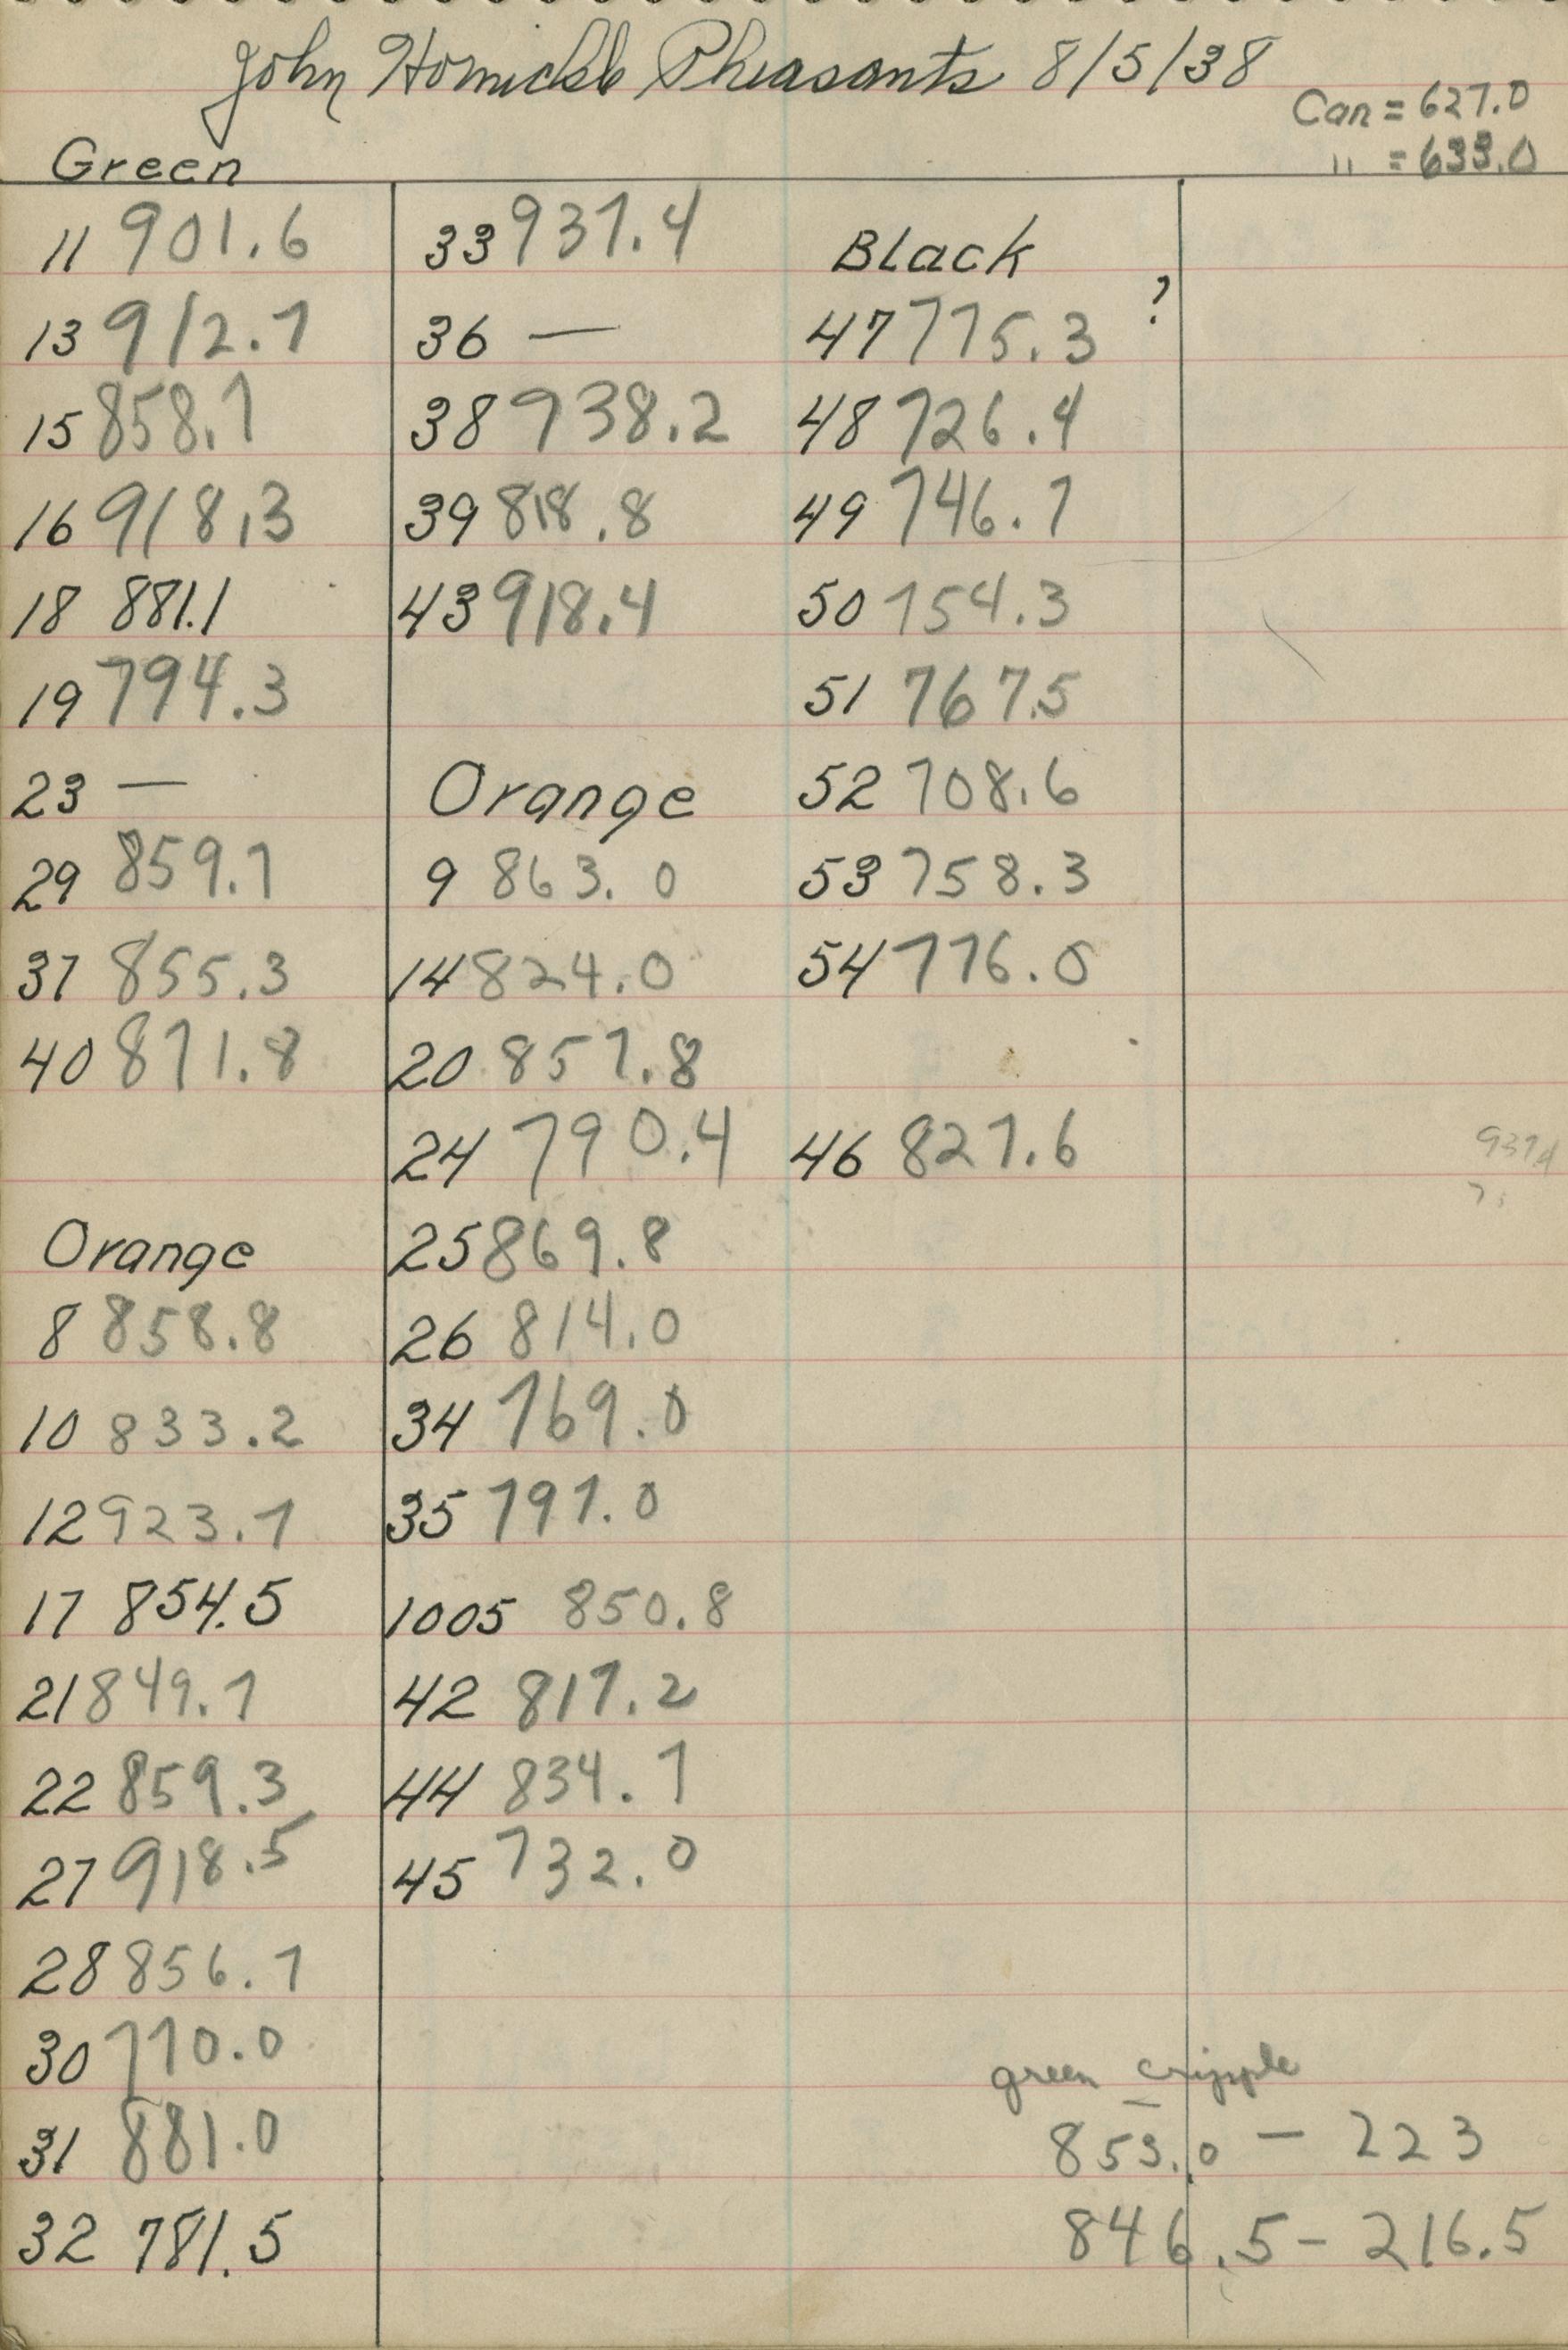 John Homickle Pheasants 8/5/38
Can = 627.0
" = 633.0
Green
11 901.6
13 912.7
15 858.7
16 918.3
18 881.1
19 794.3
23 —
29 859.7
37 855.3
40 871.8
Orange
8 858.8
10 833.2
12 923.7
17 854.5
21 849.7
22 859.3
27 918.5
28 856.7
30 770.0
31 881.0
32 781.5
33 937.4
36 —
38 938.2
39 818.8
43 918.4
Orange
9 863.0
14 824.0
20 857.8
24 790.4
25 869.8
26 814.0
34 769.0
35 797.0
1005 850.8
42 817.2
44 834.7
45 732.0
Black
47 775.3 ?
48 726.4
49 746.7
50 754.3
51 767.5
52 708.6
53 758.3
54 776.0
46 827.6
9374
green cripple
853.0 — 223
846.5 - 216.5